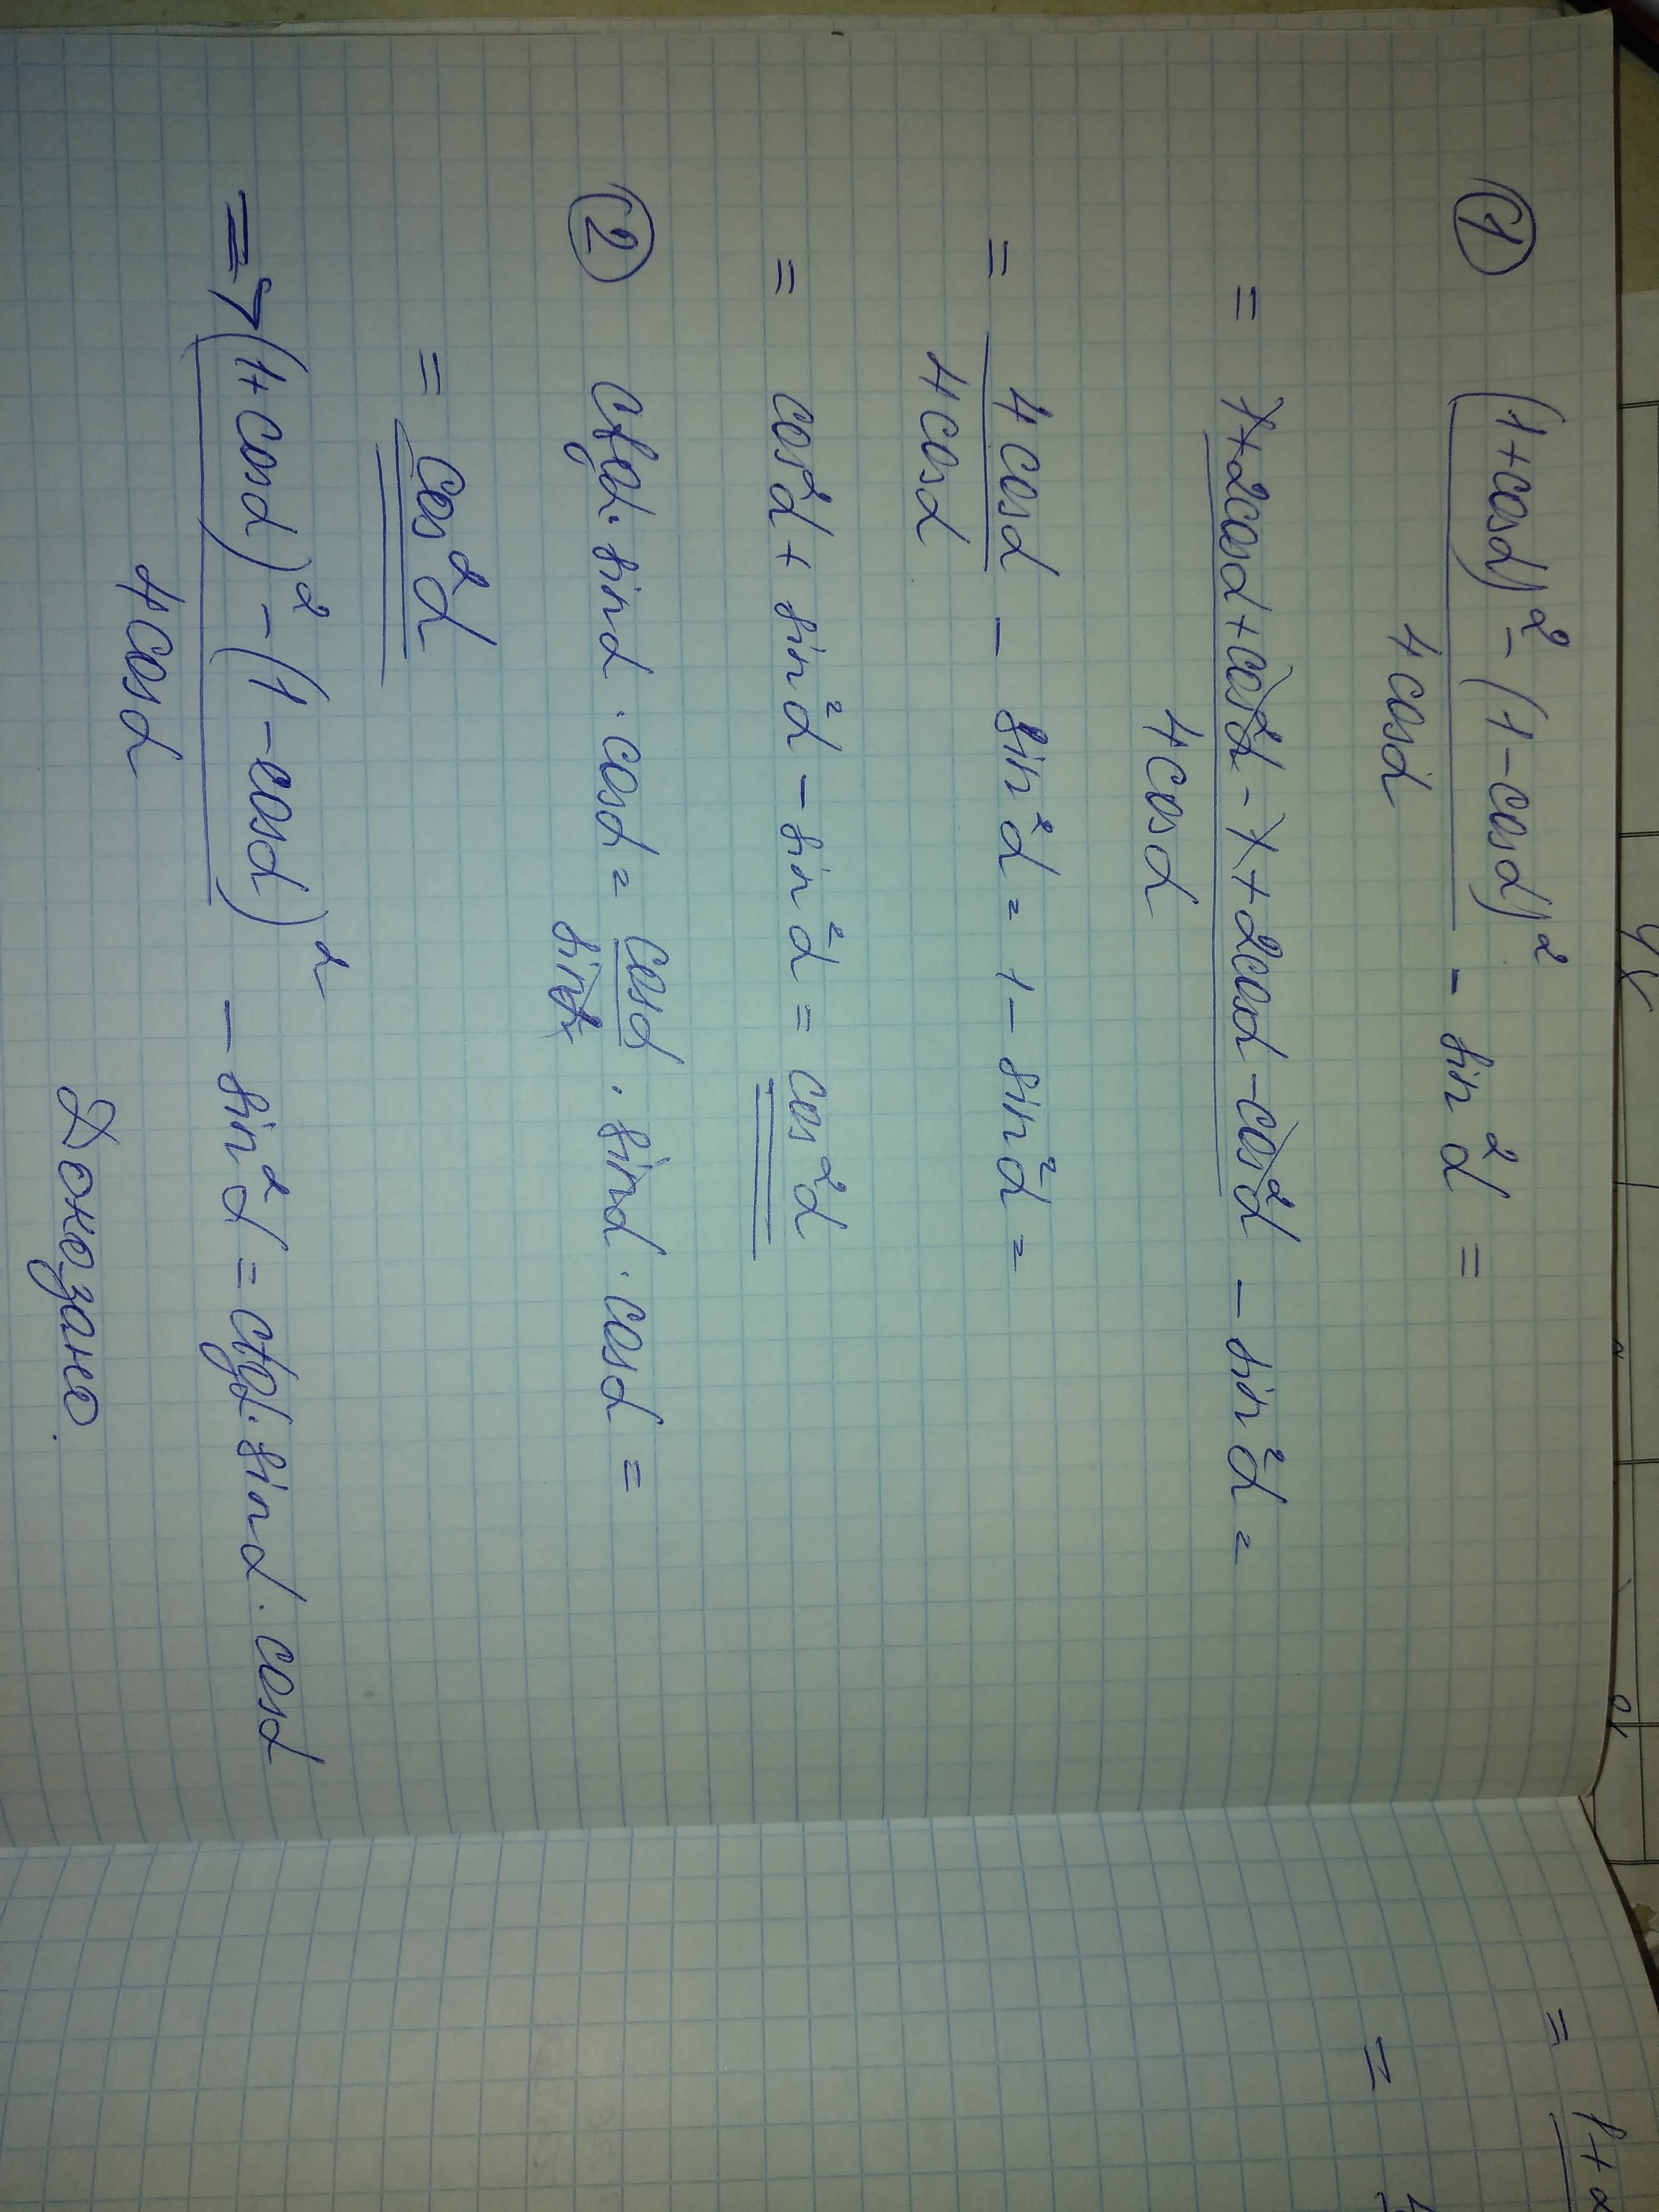 ① (1+cosα)² - (1-cosα)² - sin²α =
4cosα
= 1+2cosα+cos²α-1+2cosα-cos²α - sin²α =
4cosα
= 4cosα - sin²α = 1 - sin²α =
4cosα
= cos²α + sin²α - sin²α = cos²α
② ctgα · sinα · cosα = cosα · sinα · cosα =
sinα
= cos²α
=> (1+cosα)² - (1-cosα)² - sin²α = ctgα · sinα · cosα
4cosα
Доказано.
=
=